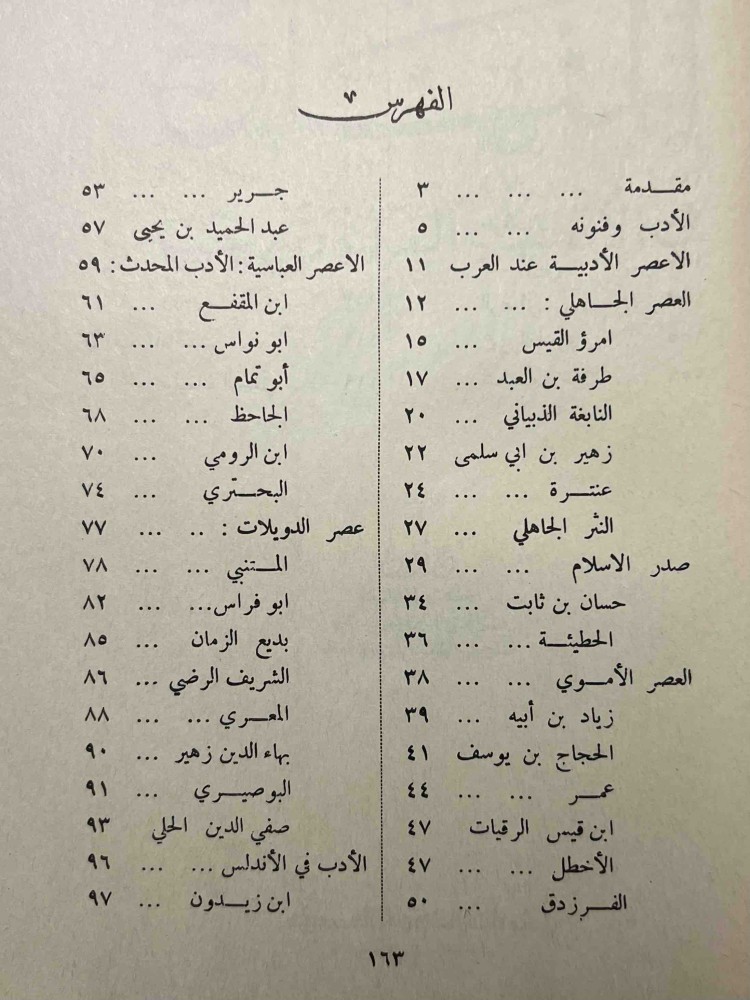 الفهرس
مقدمة ... ... ... ٣
الأدب وفنونه ... ... ٥
الاعصر الأدبية عند العرب ١١
العصر الجاهلي : ... ... ١٢
امرؤ القيس ... ١٥
طرفة بن العبد ... ١٧
النابغة الذبياني ... ٢٠
زهير بن ابي سلمى ٢٢
عنترة ... ... ٢٤
النثر الجاهلي ... ٢٧
صدر الاسلام ... ... ٢٩
حسان بن ثابت ... ٣٤
الحطيئة ... ... ٣٦
العصر الأموي ... ... ٣٨
زياد بن أبيه ... ٣٩
الحجاج بن يوسف ٤١
عمر ... ... ٤٤
ابن قيس الرقيات ٤٧
الأخطل ... ... ٤٧
الفرزدق ... ٥٠
جرير ... ... ٥٣
عبد الحميد بن يحيى ٥٧
الاعصر العباسية : الأدب المحدث : ٥٩
ابن المقفع ... ٦١
ابو نواس ... ... ٦٣
أبو تمام ... ... ٦٥
الجاحظ ... ... ٦٨
ابن الرومي ... ٧٠
البحتري ... ٧٤
عصر الدويلات : .. ... ٧٧
المتنبي ... ... ٧٨
ابو فراس ... ... ٨٢
بديع الزمان ... ٨٥
الشريف الرضي ... ٨٦
المعري ... ... ٨٨
بهاء الدين زهير ... ٩٠
البوصيري ... ٩١
صفي الدين الحلي ٩٣
الأدب في الأندلس ... ... ٩٦
ابن زيدون ... ٩٧
١٦٣